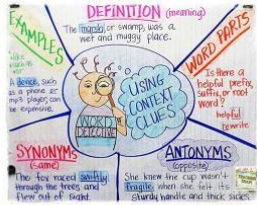 DEFINITION (meaning)
The marsh, or swamp, was a
wet and muggy place.
EXAMPLES
A device, such
as a phone or
mp3 player, can
be expensive.
WORD PARTS
Is there a
helpful prefix,
suffix, or root
word?
helpful
rewrite
USING
CONTEXT
CLUES
WORD
DETECTIVE
SYNONYMS
(same)
The fox raced swiftly
through the trees and
flew out of sight.
ANTONYMS
(opposite)
She knew the cup wasn't
fragile when she felt its
sturdy handle and thick sides.